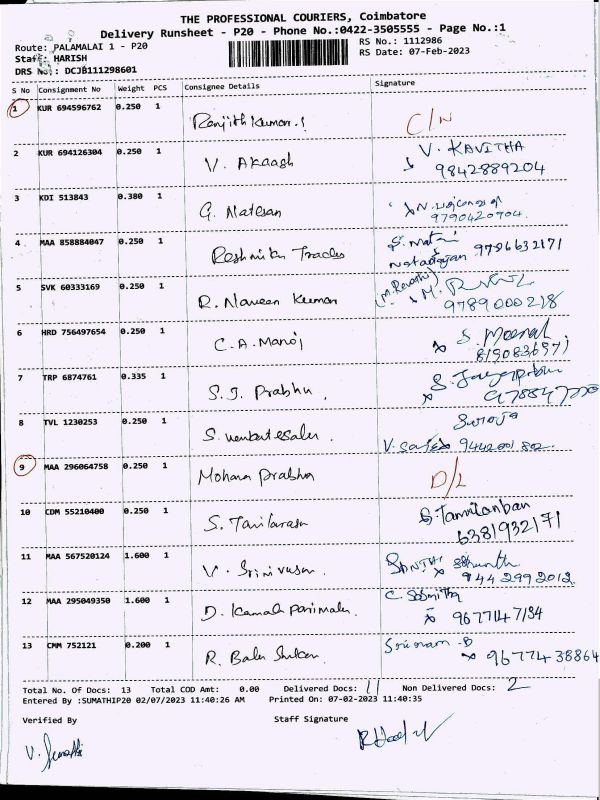 THE PROFESSIONAL COURIERS, Coimbatore
Delivery Runsheet - P20 - Phone No.:0422-3505555 - Page No.:1
Route: PALAMALAI 1 - P20
RS No.: 1112986
Staff: HARISH
RS Date: 07-Feb-2023
DRS No.: DCJB111298601
S No Consignment No Weight PCS Consignee Details Signature
1 KUR 694596762 0.250 1 Ranjith Kumar.! C/N
2 KUR 694126304 0.250 1 V. Akaash V. KAVITHA
9842889204
3 KDI 513843 0.380 1 G. Natesan
9790420904
4 MAA 858884047 0.250 1 Reshmika Trades
Natarajan 9786632171
5 SVK 60333169 0.250 1 R. Naveen Kumar (M.Revathi) M.
9789000218
6 HRD 756497654 0.250 1 C.A. Manoj S. Meena
8190836971
7 TRP 6874761 0.335 1 S.J. Prabhu. S. Jayaprabu
8 TVL 1230253 0.250 1 S. Venkatesalu. Suroja
9 MAA 296064758 0.250 1 Mohana Prabha D/L
10 CDM 55210400 0.250 1 S. Tamilarasu S Tamilanban
6381932171
11 MAA 567520124 1.600 1 V. Srinivasan.
944 299 2012
12 MAA 295049350 1.600 1 D. Kamala Parimala. C. Sasmitha
9677147134
13 CMM 752121 0.200 1 R. Balu Sriram -B
96774 38864
Total No. Of Docs: 13 Total COD Amt: 0.00 Delivered Docs: 11 Non Delivered Docs: 2
Entered By :SUMATHIP20 02/07/2023 11:40:26 AM Printed On: 07-02-2023 11:40:35
Verified By Staff Signature
V. Sumathi